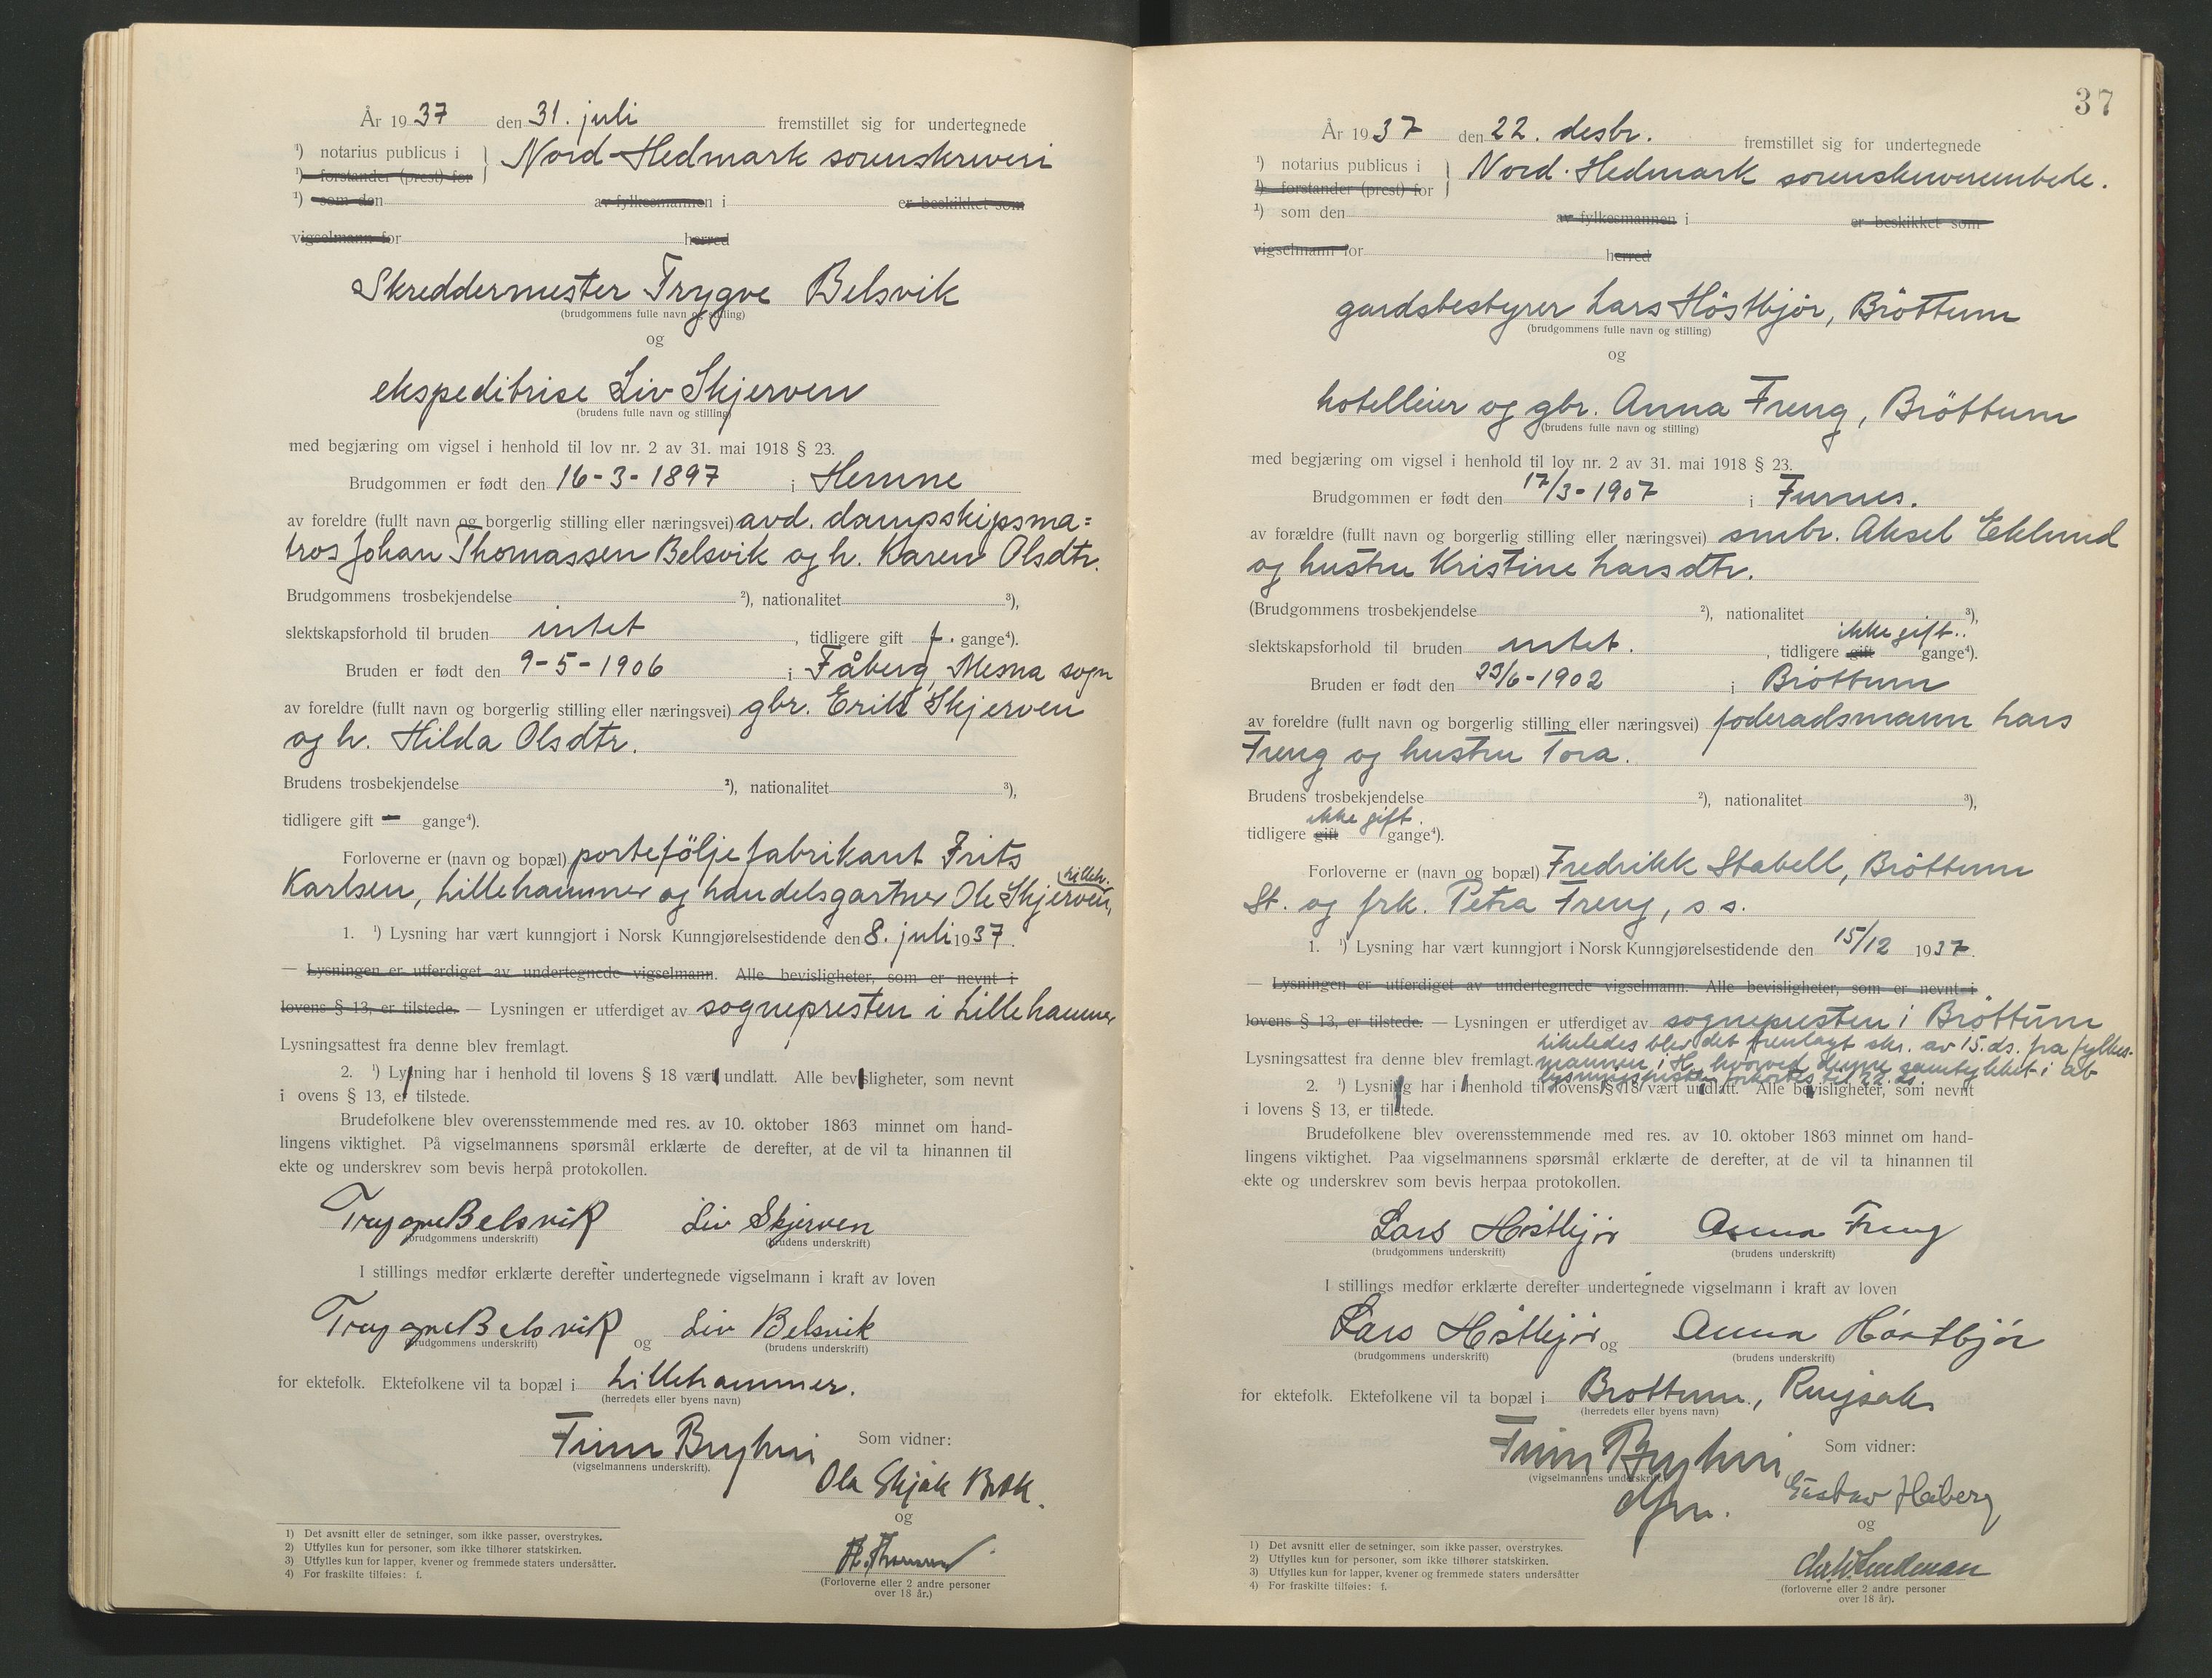 År 1937 den 31. juli fremstillet sig for undertegnede
¹) notarius publicus i } Nord-Hedmark sorenskriveri
¹) forstander (prest) for
¹) som den av fylkesmannen i er beskikket som
vigselmann for herred
Skreddermester Trygve Belsvik
(brudgommens fulle navn og stilling)
og
ekspeditrise Liv Skjerven
(brudens fulle navn og stilling)
med begjæring om vigsel i henhold til lov nr. 2 av 31. mai 1918 § 23.
Brudgommen er født den 16-3-1897 i Hemne
av foreldre (fullt navn og borgerlig stilling eller næringsvei) avd. dampskipsma=
tros Johan Thomassen Belsvik og h. Karen Olsdtr.
Brudgommens trosbekjendelse ²), nationalitet ³),
slektskapsforhold til bruden intet , tidligere gift f. gange⁴).
Bruden er født den 9-5-1906 i Fåberg, Mesna sogn
av foreldre (fullt navn og borgerlig stilling eller næringsvei) gbr. Erik Skjerven
og h. Hilda Olsdtr.
Brudens trosbekjendelse ²), nationalitet ³),
tidligere gift - gange⁴).
Forloverne er (navn og bopæl) porteföljefabrikant Frits
Karlsen, Lillehammer og handelsgartner Ole Skjerven, Lilleh.
1. ¹) Lysning har vært kunngjort i Norsk Kunngjørelsestidende den 8. juli 1937.
— Lysningen er utferdiget av undertegnede vigselmann. Alle bevisligheter, som er nevnt i
lovens § 13, er tilstede. — Lysningen er utferdiget av sognepresten i Lillehammer
Lysningsattest fra denne blev fremlagt.
2. ¹) Lysning har i henhold til lovens § 18 vært undlatt. Alle bevisligheter, som nevnt
i ovens § 13, er tilstede.
Brudefolkene blev overensstemmende med res. av 10. oktober 1863 minnet om hand-
lingens viktighet. På vigselmannens spørsmål erklærte de derefter, at de vil ta hinannen til
ekte og underskrev som bevis herpå protokollen.
Trygve Belsvik Liv Skjerven
(brudgommens underskrift) (brudens underskrift)
I stillings medfør erklærte derefter undertegnede vigselmann i kraft av loven
Trygve Belsvik og Liv Belsvik
(brudgommens underskrift) (brudens underskrift)
for ektefolk. Ektefolkene vil ta bopæl i Lillehammer.
(herredets eller byens navn)
Finn Bryhni Som vidner:
(vigselmannens underskrift).
Ola Skjåk Bræk.
og
(Forloverne eller 2 andre personer
over 18 år.)
1) Det avsnitt eller de setninger, som ikke passer, overstrykes.
2) Utfylles kun for personer, som ikke tilhører statskirken.
3) Utfylles kun for lapper, kvener og fremmede staters undersåtter.
4) For fraskilte tilføies: f.
37
År 1937 den 22. desbr. fremstillet sig for undertegnede
¹) notarius publicus i } Nord-Hedmark sorenskriverembede.
¹) forstander (prest) for
¹) som den av fylkesmannen i er beskikket som
vigselmann for herred
gardsbestyrer Lars Höstbjör, Bröttum
(brudgommens fulle navn og stilling)
og
hotelleier og gbr. Anna Freng, Bröttum
(brudens fulle navn og stilling)
med begjæring om vigsel i henhold til lov nr. 2 av 31. mai 1918 § 23.
Brudgommen er født den 17/3-1907 i Furnes.
av forældre (fullt navn og borgerlig stilling eller næringsvei) smbr. Aksel Eklund
og hustru Kristine Larsdtr.
(Brudgommens trosbekjendelse ²), nationalitet ³),
slektskapsforhold til bruden intet. , tidligere gift ikke gift.. gange⁴).
Bruden er født den 23/6-1902 i Bröttum
av foreldre (fullt navn og borgerlig stilling eller næringsvei) foderadsmann Lars
Freng og hustru Tora.
Brudens trosbekjendelse ²), nationalitet ³),
tidligere gift ikke gift. gange⁴).
Forloverne er (navn og bopæl) Fredrikk Stabell, Bröttum
St. og frk. Petra Freng, s s.
1. ¹) Lysning har vært kunngjort i Norsk Kunngjørelsestidende den 15/12 1937.
— Lysningen er utferdiget av undertegnede vigselmann. Alle bevisligheter, som er nevnt i
lovens § 13, er tilstede. — Lysningen er utferdiget av sognepresten i Bröttum
Likeledes blev det fremlagt skr. av 15. ds. fra fylkes-
Lysningsattest fra denne blev fremlagt. mannen i H. hvorved denne samtykket i at
lysningsfristen forkortes til 22. ds.
2. ¹) Lysning har i henhold til lovens § 18 vært undlatt. Alle bevisligheter, som nevnt
i lovens § 13, er tilstede.
Brudefolkene blev overensstemmende med res. av 10. oktober 1863 minnet om hand-
lingens viktighet. Paa vigselmannens spørsmål erklærte de derefter, at de vil ta hinannen til
ekte og underskrev som bevis herpaa protokollen.
Lars Höstbjör Anna Freng
(brudgommens underskrift) (brudens underskrift)
I stillings medfør erklærte derefter undertegnede vigselmann i kraft av loven
Lars Höstbjör og Anna Höstbjör
(brudgommens underskrift) (brudens underskrift)
for ektefolk. Ektefolkene vil ta bopæl i Brøttum, Ringsaker
(herredets eller byens navn)
Finn Bryhni Som vidner:
(vigselmannens underskrift).
Gustav Haberg
og
(forloverne eller 2 andre personer
over 18 år).
1) Det avsnitt eller de setninger, som ikke passer, overstrykes.
2) Utfylles kun for personer, som ikke tilhører statskirken.
3) Utfylles kun for lapper, kvener og fremmede staters undersåtter
4) For fraskilte tilføies: f.